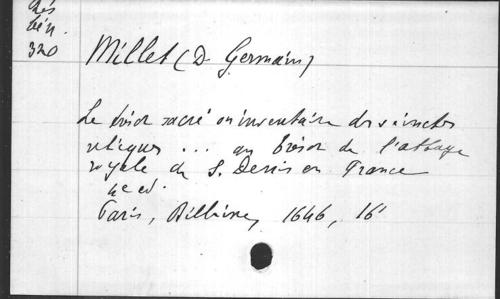 Rés
bén.
320
Millet (D. Germain)
Le trésor sacré ou inventaire des sainctes
reliques ... au trésor de l'abbaye
royale de S. Denis en France
4e ed.
Paris, Billaine, 1646, 16°